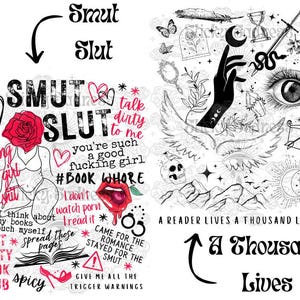 Smut
Slut
SMUT
SLUT
talk
dirty
to me
you're such
a good
fucking girl
#BOOK WHORE
I don't
watch porn
I read it
think about
books
much myself
spread those
pages
CAME FOR THE
ROMANCE
STAYED FOR THE
SMUT
spicy
GIVE ME ALL THE
TRIGGER WARNINGS
A READER LIVES A THOUSAND L
A Thousan
Lives